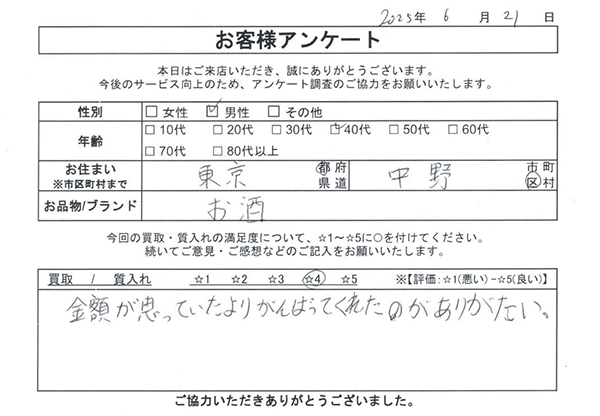 2025年 6月 21日
お客様アンケート
本日はご来店いただき、誠にありがとうございます。
今後のサービス向上のため、アンケート調査のご協力をお願いいたします。
性別 □女性 ☑男性 □その他
年齢 □10代 □20代 □30代 ☑40代 □50代 □60代
□70代 □80代以上
お住まい ※市区町村まで 東京 都府県道 中野 市町区村
お品物/ブランド お酒
今回の買取・質入れの満足度について、☆1～☆5に○を付けてください。
続いてご意見・ご感想などのご記入をお願いいたします。
買取 / 質入れ ☆1 ☆2 ☆3 ☆4 ☆5 ※【評価:☆1(悪い)−☆5(良い)】
金額が思っていたよりがんばってくれたのがありがたい。
ご協力いただきありがとうございました。